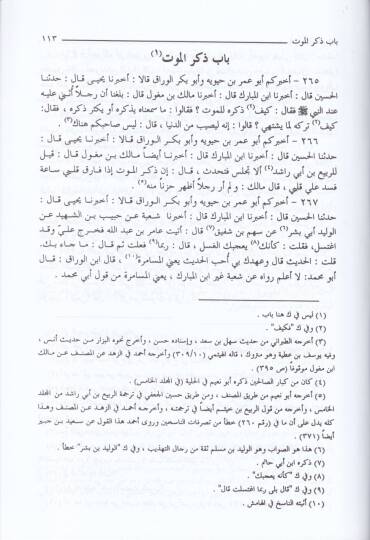 باب ذكر الموت ١١٣
باب ذكر الموت(١)
٢٦٥ – أخبركم أبو عمر بن حيويه وأبو بكر الوراق قالا : أخبرنا يحيى قال : حدثنا
الحسين قال : أخبرنا ابن المبارك قال : أخبرنا مالك بن مغول قال : بلغنا أن رجلاً أُثني عليه
عند النبي ﷺ فقال : كيف(٢) ذكره للموت ؟ فقالوا : ما سمعناه يذكره أو يكثر ذكره ، فقال :
كيف(٢) تركه لما يشتهي ؟ قالوا : إنه ليصيب من الدنيا ، قال : ليس صاحبكم هناك(٣) .
٢٦٦ – أخبركم أبو عمر بن حيويه وأبو بكر الوراق قالا : أخبرنا يحيى قال :
حدثنا الحسين قال : أخبرنا ابن المبارك قال : أخبرنا أيضاً مالك بن مغول قال : قيل
للربيع بن أبي راشد(٤) ألا تجلس فتحدث ، قال : إن ذكر الموت إذا فارق قلبي ساعة
فسد علي قلبي ، قال مالك : ولم أر رجلاً أظهر حزناً منه(٥) .
٢٦٧ – أخبركم أبو عمر بن حيويه وأبو بكر الوراق قالا : أخبرنا يحيى قال :
حدثنا الحسين قال : أخبرنا ابن المبارك قال : أخبرنا شعبة عن حبيب بن الشهيد عن
الوليد أبي بشر(٦) عن سهم بن شقيق(٧) قال : أتيت عامر بن عبد الله فخرج عليّ وقد
اغتسل، فقلت : كأنك(٨) يعجبك الغسل ، قال : ربما(٩) فعلت ثم قال : ما جاء بك.
قلت : الحديث قال وعهدك بي أُحب الحديث يعني المسامرة(١٠) ، قال ابن الوراق : قال
أبو محمد: لا أعلم رواه عن شعبة غير ابن المبارك ، يعني المسامرة من قول أبي محمد .
(١) ليس في ك هنا باب .
(٢) وفي ك "فكيف" .
(٣) أخرجه الطبراني من حديث سهل بن سعد ، وإسناده حسن ، وأخرج نحوه البزار من حديث أنس ،
وفيه يوسف بن عطية وهو متروك ، قاله الهيثمي (٣٠٩/١٠) وأخرجه أحمد في الزهد عن المصنف عن مالك
ابن مغول موقوفاً (ص ٣٩٥) .
(٤) كان من كبار الصالحين ذكره أبو نعيم في الحلية (في المجلد الخامس) .
(٥) أخرجه أبو نعيم من طريق المصنف ، ومن طريق حسين الجعفي في ترجمة الربيع بن أبي راشد من المجلد
الخامس ، وأخرجه من قول الربيع بن خيثم أيضاً في ترجمته ، وأخرجه أحمد في الزهد عن المصنف وهذا
كله يدل على أن ما في (رقم ٢٦٠) خطأ من تصرفات الناسخين وروى أحمد هذا القول عن سعيد بن جبير
أيضاً (٣٧١) .
(٦) هذا هو الصواب وهو الوليد بن مسلم ثقة من رجال التهذيب ، وفي ك "الوليد بن بشر" خطأ .
(٧) ذكره ابن أبي حاتم .
(٨) وفي ك "كأنه يعجبك" .
(٩) وفي ك "قال بلى ربما اغتسلت قال" .
(١٠) أثبته الناسخ في الهامش .